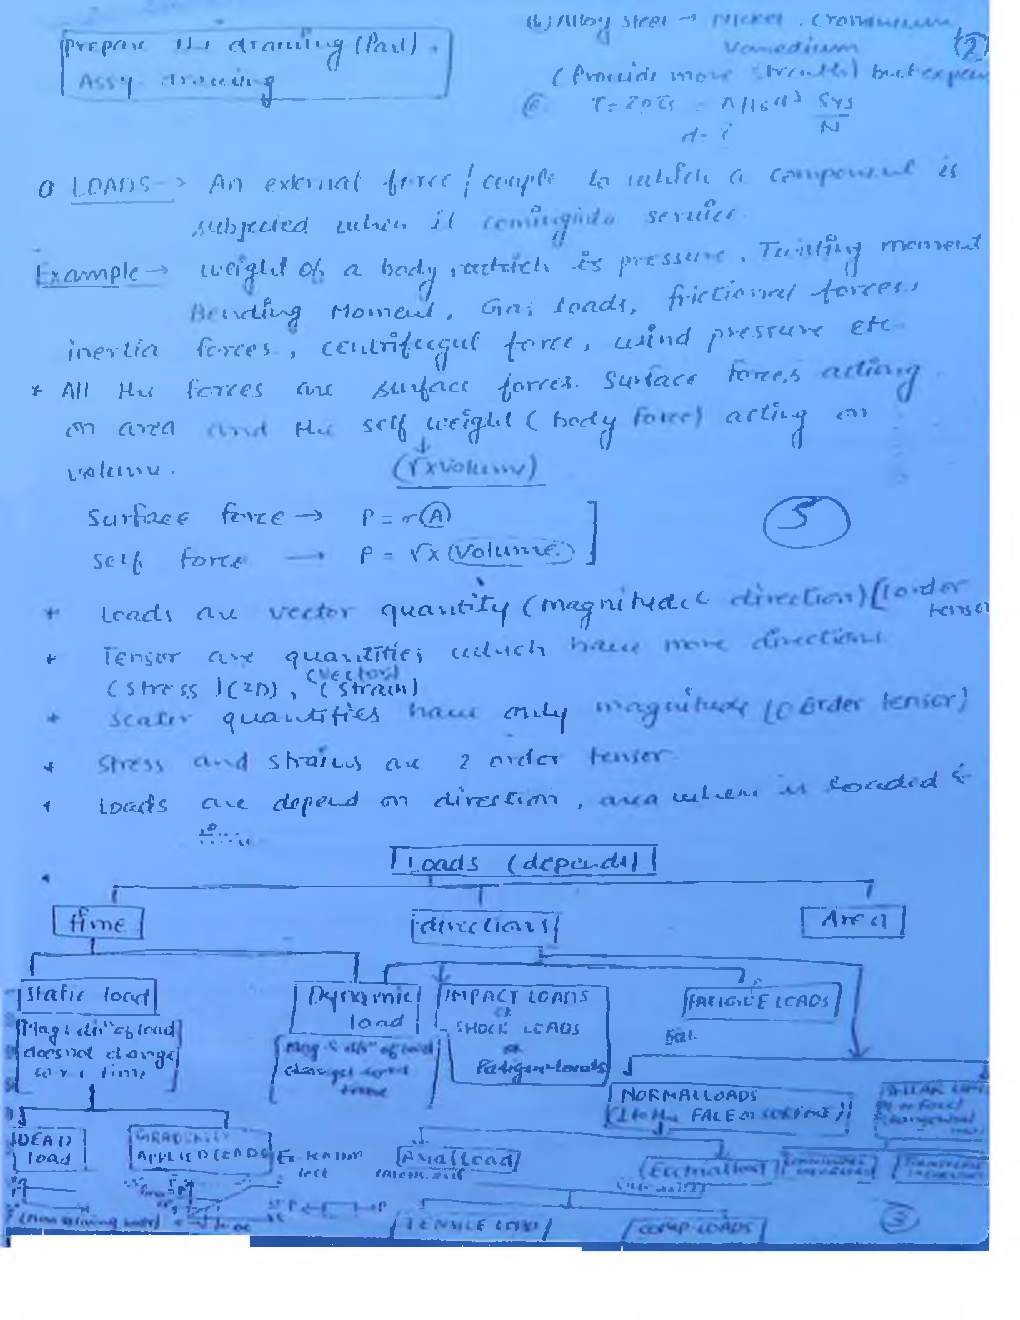 Prepare the drawing (Part).
Assy. drawing
(b) Alloy steel → Nickel, Cromonium,
Vanedium
(2)
(Provide more strenth) but expen
d = ?
0 LOADS → An external force / couple to which a component is
subjected when it comingido service.
Example → weight of a body, which is pressure, Twisting moment
Bending Moment, Gas loads, frictional forces,
inertia forces, centrifugul force, wind pressure etc
* All the forces are surface forces. Surface forces acting
on area and the self weight (body force) acting on
↓
volume. (γ x Volume)
Surface force → P = σ(A)
5
Self force → P = γ x (Volume)
* Loads are vector quantity (magnitude & direction) [1 order
tensor
* Tensor are quantities which have more direction
(vector)
(stress)(2D), (strain)
* Scaler quantities have only magnitude (0 order tensor)
* Stress and strains are 2 order tensor.
* Loads are depend on direction, area when is loaded &
Loads (depends)
time
directions
Area
Static load
Dynamic
load
IMPACT LOADS
or
SHOCK LOADS
or
Fatigue loads
FATIGUE LOADS
Mag & dirn of load
does not change
w.r.t time
Mag & dirn of load
changes w.r.t
time
NORMAL LOADS
DEAD
load
GRADUALLY
APPLIED LOADS
Axial Load
TENSILE LOAD
COMP LOADS
3